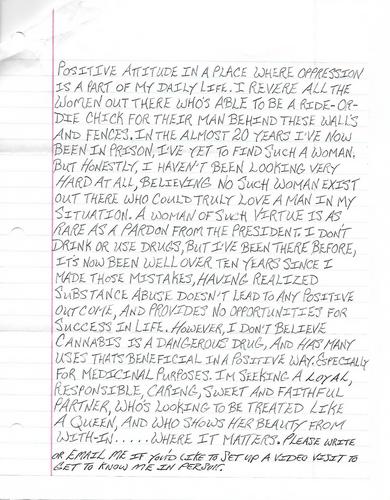 POSITIVE ATTITUDE IN A PLACE WHERE OPPRESSION
IS A PART OF MY DAILY LIFE. I REVERE ALL THE
WOMEN OUT THERE WHO'S ABLE TO BE A RIDE-OR-
DIE CHICK FOR THEIR MAN BEHIND THESE WALLS
AND FENCES. IN THE ALMOST 20 YEARS I'VE NOW
BEEN IN PRISON, I'VE YET TO FIND SUCH A WOMAN.
BUT HONESTLY, I HAVEN'T BEEN LOOKING VERY
HARD AT ALL, BELIEVING NO SUCH WOMAN EXIST
OUT THERE WHO COULD TRULY LOVE A MAN IN MY
SITUATION. A WOMAN OF SUCH VIRTUE IS AS
RARE AS A PARDON FROM THE PRESIDENT. I DON'T
DRINK OR USE DRUGS, BUT I'VE BEEN THERE BEFORE,
IT'S NOW BEEN WELL OVER TEN YEARS SINCE I
MADE THOSE MISTAKES, HAVING REALIZED
SUBSTANCE ABUSE DOESN'T LEAD TO ANY POSITIVE
OUTCOME, AND PROVIDES NO OPPORTUNITIES FOR
SUCCESS IN LIFE. HOWEVER, I DON'T BELIEVE
CANNABIS IS A DANGEROUS DRUG, AND HAS MANY
USES THATS BENEFICIAL IN A POSITIVE WAY. ESPECIALLY
FOR MEDICINAL PURPOSES. I'M SEEKING A LOYAL,
RESPONSIBLE, CARING, SWEET AND FAITHFUL
PARTNER, WHO'S LOOKING TO BE TREATED LIKE
A QUEEN, AND WHO SHOWS HER BEAUTY FROM
WITH-IN..... WHERE IT MATTERS. PLEASE WRITE
OR EMAIL ME IF YOU'D LIKE TO SET UP A VIDEO VISIT TO
GET TO KNOW ME IN PERSON.